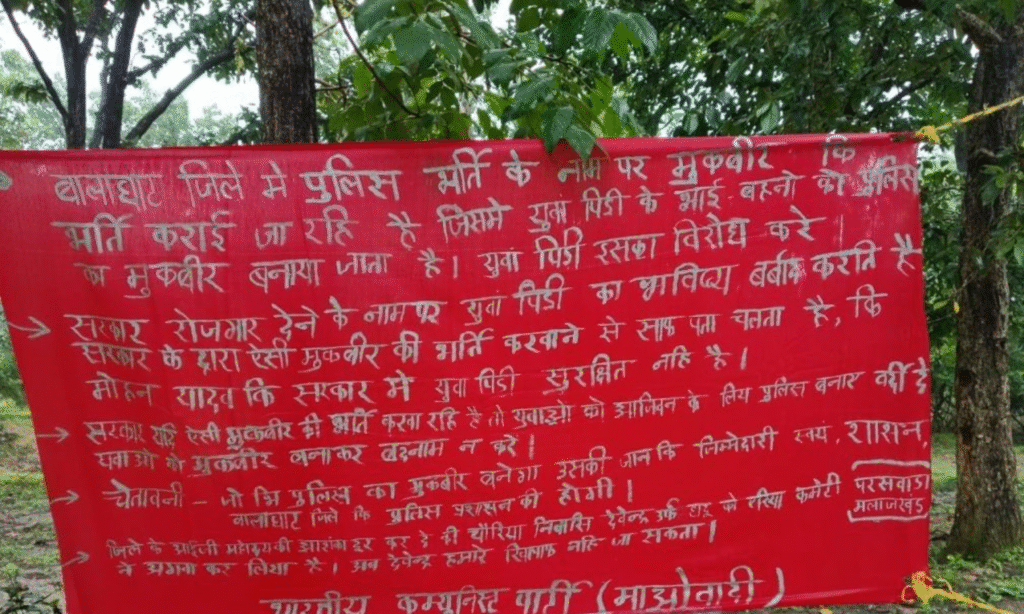 बालाघाट जिले मे पुलिस भर्ति के नाम पर मुकबीर कि
भर्ति कराई जा रहि है जिसमे युवा पिडी के भाई बहनो को पुलिस
का मुकबीर बनाया जाता है। युवा पिडी इसका विरोध करे।
→ सरकार रोजगार देने के नाम पर युवा पिडी का भाविष्य बर्बाद कराति है
सरकार के द्वारा ऐसी मुकबीर की भर्ति करवाने से साफ पता चलता है, कि
मोहन यादव कि सरकार मे युवा पिडी सुरक्षित नहि है।
→ सरकार यदि ऐसी मुकबीर की भर्ति करवा रहि है तो युवाओ को आजिवन के लिय पुलिस बनाए वर्दी दे
युवाओ को मुकबीर बनाकर बदनाम न करें।
→ चेतावनी - जो भि पुलिस का मुकबीर बनेगा उसकी जान कि जिम्मेदारी स्वयं, शासन,
बालाघाट जिले कि पुलिस प्रशासन की होगी।
→ जिले के आईजी महोदय की आशंका दूर कर दे की चौरिया निवासि देवेन्द्र उर्फ को एरिया कमेटी परसवाडा मलाजखंड
ने अगवा कर लिया है। अब देवेन्द्र हमारे खिलाफ नहि जा सकता।
भारतीय कम्युनिस्ट पार्टी (माओवादी)